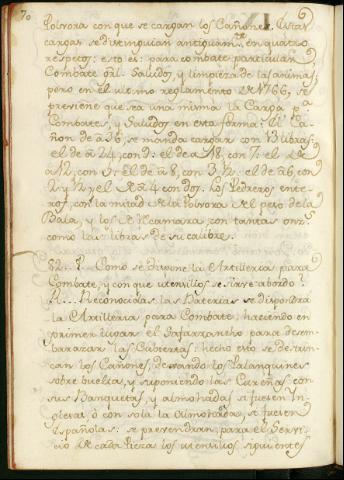 70
Polvora con que se cargan los Cañones. Estas
cargas se distinguian antiguam.te en quatro
respetos: esto es: para combate particular,
Combate gral. Saludos, y limpieza de las animas;
pero en el ultimo reglamento de 1766, se
previene que sea una misma la Carga p.a
Combates, y Saludos en esta forma: El Ca-
ñon de à 36, se manda cargar con 13 libras:
el de à 24, con 9: el de à 18, con 7: el de
à 12, con 5: el de à 8, con 3½: el de à 6, con
2½ y el de à 4 con dos. Los Pedreros ente-
ros, con la mitad de la Polvora del peso de la
Bala, y los de Recamara, con tantas onz.s
como las libras de su calibre.
82.. P. Como se dispone la Artilleria para
Combate, y con que utensilios se sirve abordo?
R... Reconocidas las Baterias se dispondrá
la Artilleria para Combate, haciendo en
primer lugar el Zafarrancho para desem-
barazar las Cubiertas: hecho esto se destrin-
can los Cañones, dexando los Palanquines
sobre buelta, y suponiendo las Cureñas con
sus Banquetas, y almohadas si fuesen In-
glesas, ò con sola la Almohada, si fuesen
Españolas: se prevendran para el Servi-
cio de cada Pieza los utensilios siguientes